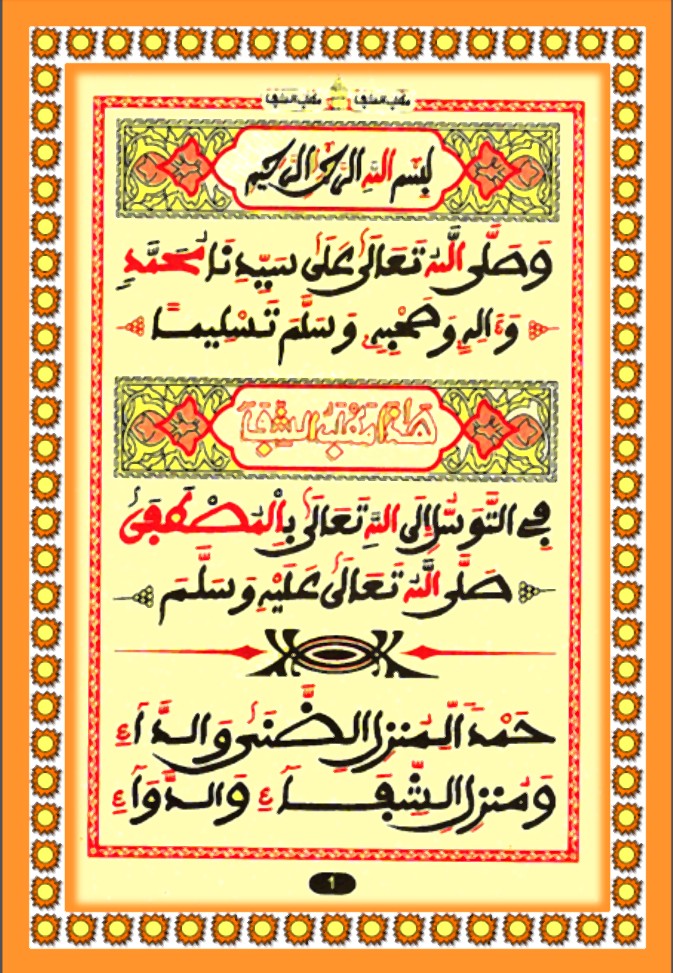 بسم الله الرحمن الرحيم
وَصَلَّى اللَّهُ تَعَالَىٰ عَلَىٰ سَيِّدِنَا مُحَمَّدٍ
وَءَالِهِ وَصَحْبِهِ وَسَلَّمَ تَسْلِيمًا
هَٰذَا مَطْلَبُ الشِّفَآءِ
فِي التَّوَسُّلِ إِلَى اللَّهِ تَعَالَىٰ بِالْمُصْطَفَىٰ
صَلَّى اللَّهُ تَعَالَىٰ عَلَيْهِ وَسَلَّمَ
حَمْدًا لِّمُنزِلِ الضَّنَىٰ وَالدَّآءِ
وَمُنزِلِ الشِّفَآءِ وَالدَّوَآءِ
1